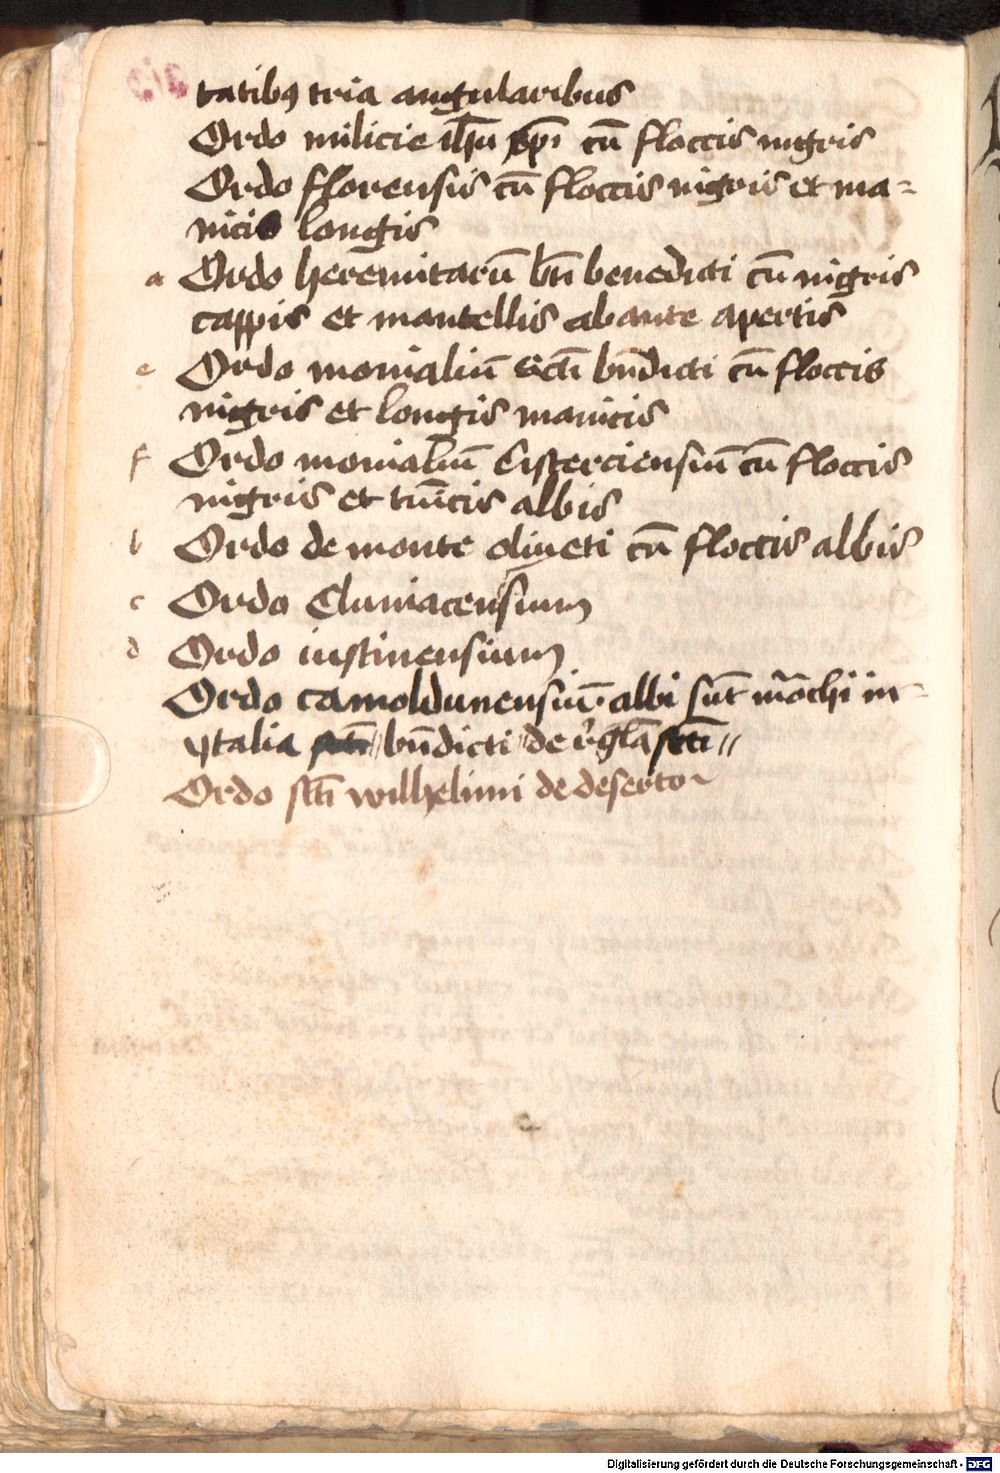 tatibꝯ tria angularibus
Ordo milicie ihu xpi cū floccis nigris
Ordo florensis cū floccis nigris et ma=
nicis longis
a Ordo heremitarū bti benedicti cū nigris
cappis et mantellis abante apertis
e Ordo monialiū scti bn̄dicti cū floccis
nigris et longis manicis
f Ordo monialiū Cisterciensiū cū floccis
nigris et tunicis albis
b Ordo de monte oliveti cū floccis albis
c Ordo Cluniacensium
d Ordo iustinensium
Ordo camoldunensiū albi sūt mōchi in
ytalia bn̄dicti de regla scti
Ordo scti wilhelimi de deserto
Digitalisierung gefördert durch die Deutsche Forschungsgemeinschaft - DFG